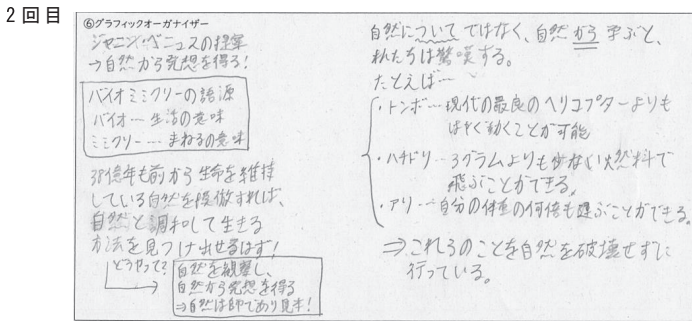 2回目
⑥グラフィックオーガナイザー
ジャニン・ベニュスの提案
→自然から発想を得る!
バイオミミクリーの語源
バイオ…生活の意味
ミミクリー…まねるの意味
38億年も前から生命を維持
している自然を模倣すれば、
自然と調和して生きる
方法を見つけ出せるはず!
どうやって?
自然を観察し、
自然から発想を得る
⇒自然は師であり見本!
自然についてではなく、自然から学ぶと、
私たちは驚嘆する。
たとえば…
・トンボ…現代の最良のヘリコプターよりも
はやく動くことが可能
・ハチドリ…3グラムよりも少ない燃料で
飛ぶことができる。
・アリ…自分の体重の何倍も運ぶことができる。
⇒これらのことを自然を破壊せずに
行っている。